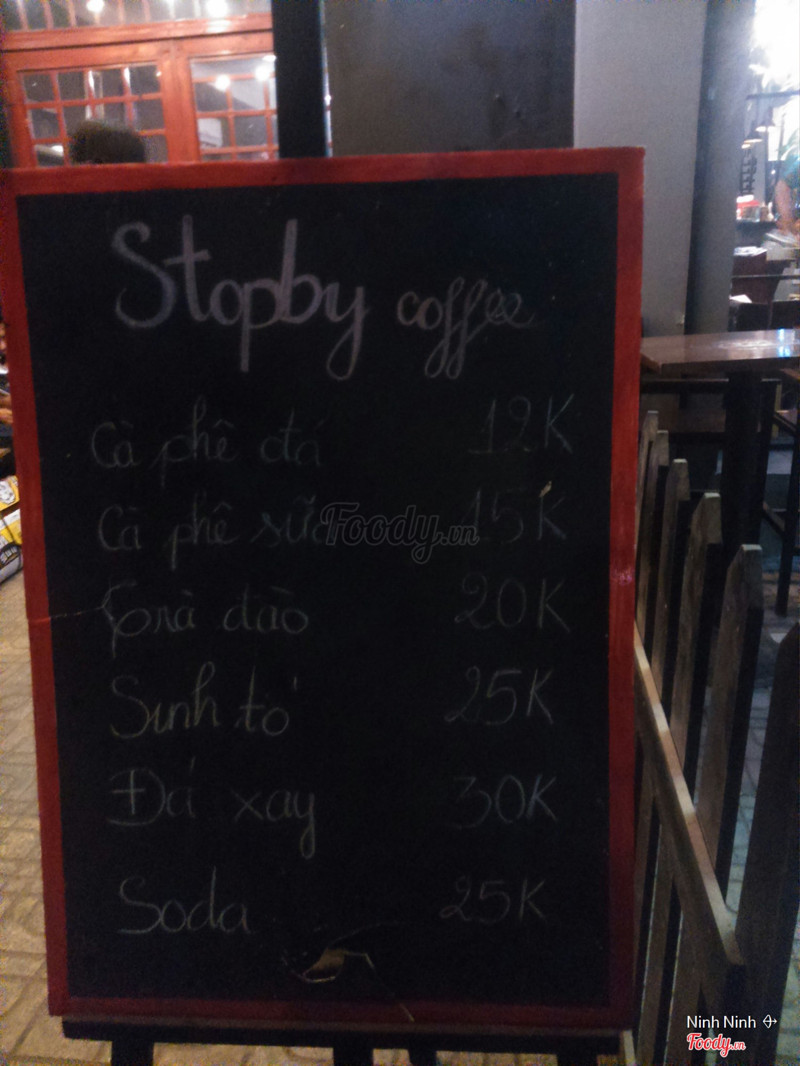 Stopby coffee
Cà phê đá 12K
Cà phê sữa 15K
Trà đào 20K
Sinh tố 25K
Đá xay 30K
Soda 25K
Foody.vn
Ninh Ninh
Foody.vn